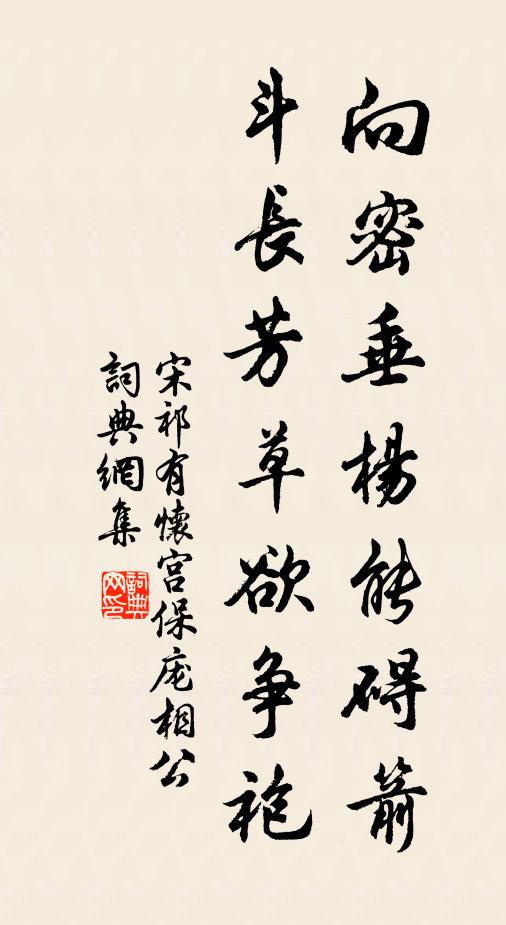 向密垂楊能碍箭
斗長芳草欲争袍
宋祁有懷宫保庞相公
詞典網集
詞典网印